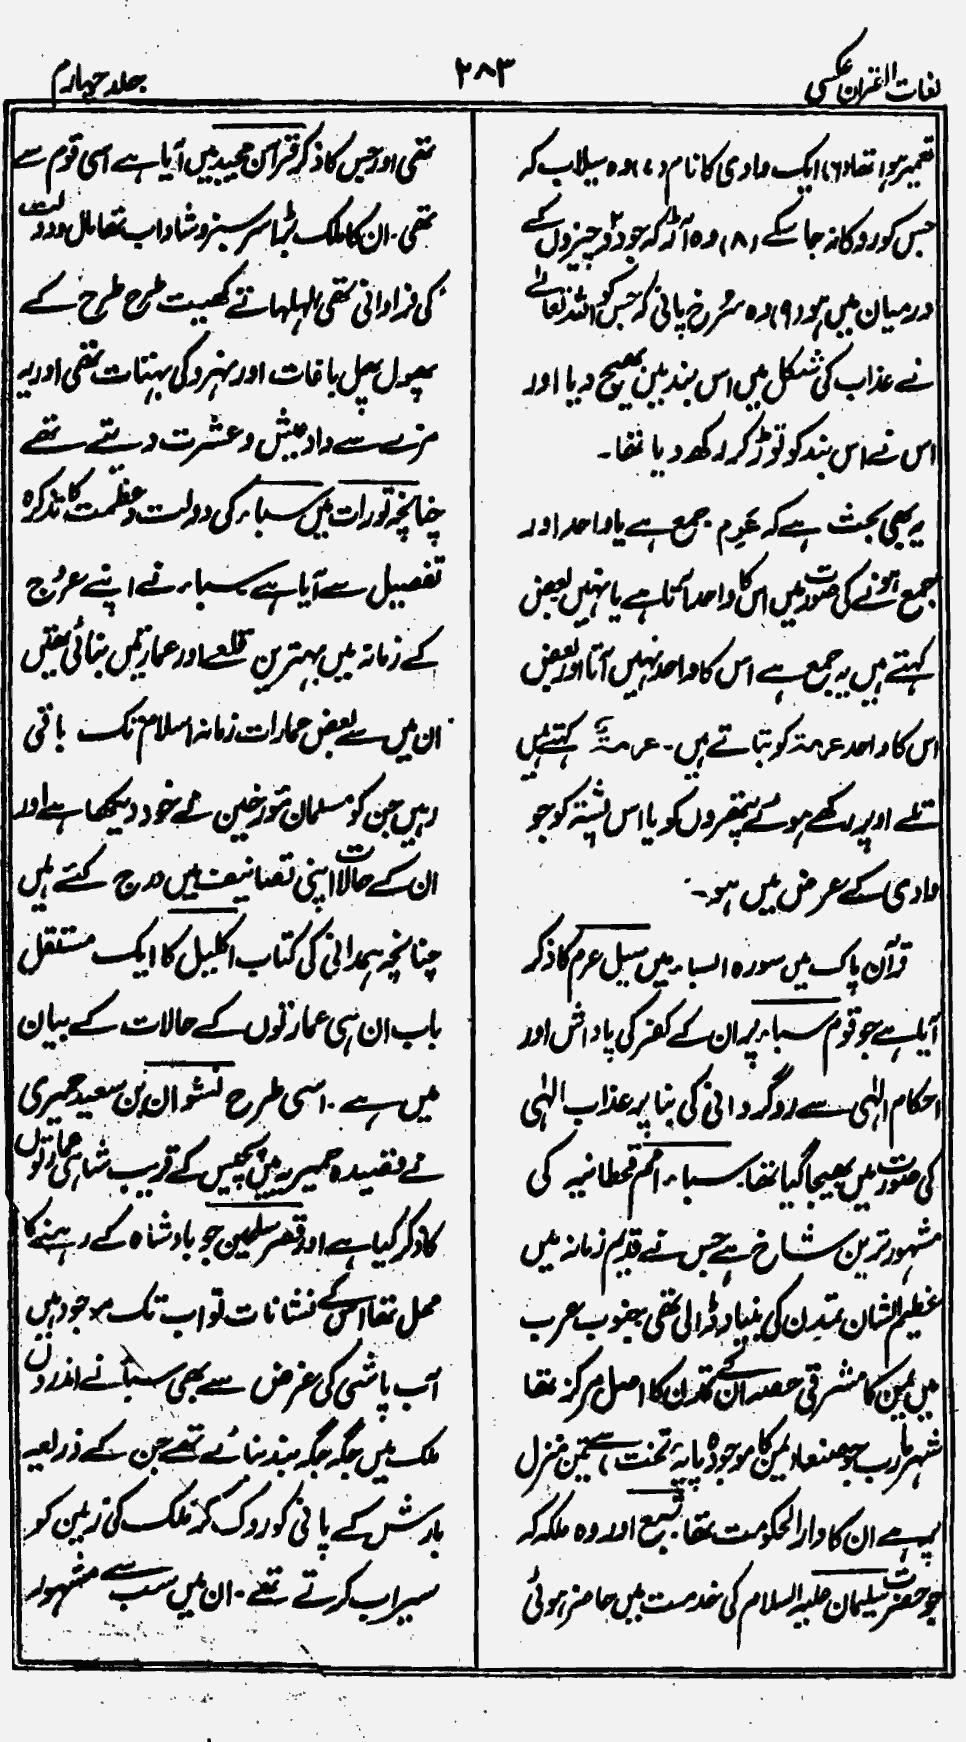 لغات القرآن عکسی
۲۸۳
جلد چہارم
تعمیر ہوا تھا (۶) ایک وادی کا نام (۷) وہ سیلاب کہ
جس کو روکا نہ جا سکے (۸) وہ آڑ کہ جو دو چیزوں کے
درمیان میں ہو (۹) وہ سُرخ پانی کہ جس کو اللہ تعالےٰ
نے عذاب کی شکل میں اس بند میں بھیج دیا اور
اس نے اس بند کو توڑ کر رکھ دیا تھا۔
یہ بھی بحث ہے کہ عَرِم جمع ہے یا واحد اور
جمع ہونے کی صورت میں اس کا واحد آتا ہے یا نہیں بعض
کہتے ہیں یہ جمع ہے اس کا واحد نہیں آتا اور بعض
اس کا واحد عرمۃ کو بتاتے ہیں۔ عرمۃ کہتے ہیں
تلے اوپر رکھے ہوئے پتھروں کو یا اس پشتہ کو جو
وادی کے عرض میں ہو۔
قرآن پاک میں سورہ السباء میں سیل عرم کا ذکر
آیا ہے جو قوم سباء پر ان کے کفر کی پاداش اور
احکام الٰہی سے روگردانی کی بنا پر عذاب الٰہی
کی صورت میں بھیجا گیا تھا۔ سباء، امم قحطانیہ کی
مشہور ترین شاخ ہے جس نے قدیم زمانہ میں
عظیم الشان تمدن کی بنیاد ڈالی تھی جنوب عرب
میں یمن کا مشرقی حصہ ان کے تمدن کا اصل مرکز تھا
شہر مارب جو صنعاء یمن کا موجودہ پایۂ تخت سے تین منزل
پر ہے ان کا دار الحکومت تھا تُبع اور وہ ملکہ کہ
جو حضرت سلیمان علیہ السلام کی خدمت میں حاضر ہوئی
تھی اور جس کا ذکر قرآن مجید میں آیا ہے اسی قوم سے
تھی۔ ان کا ملک بڑا سرسبز و شاداب تھا مال و دولت
کی فراوانی تھی لہلہاتے کھیت طرح طرح کے
پھول پھل باغات اور نہرو کی بہتات تھی اور یہ
مزے سے داد عیش و عشرت دیتے تھے
چنانچہ تورات میں سباء کی دولت و عظمت کا تذکرہ
تفصیل سے آیا ہے سباء نے اپنے عروج
کے زمانہ میں بہترین قلعے اور عمارتیں بنائی تھیں
ان میں سے بعض عمارات زمانہ اسلام تک باقی
رہیں جن کو مسلمان مورخین نے خود دیکھا ہے اور
ان کے حالات اپنی تصانیف میں درج کئے ہیں
چنانچہ ہمدانی کی کتاب اکلیل کا ایک مستقل
باب ان ہی عمارتوں کے حالات کے بیان
میں ہے۔ اسی طرح نشوان بن سعید حمیری
نے قصیدہ حمیریہ میں پچیس کے قریب شاہی عمارتوں
کا ذکر کیا ہے اور قصر سلحین جو بادشاہ کے رہنے کا
محل تھا اس کے نشانات تو اب تک موجود ہیں
آب پاشی کی غرض سے بھی سبا نے اندرون
ملک میں جگہ جگہ بند بنائے تھے جن کے ذریعہ
بارش کے پانی کو روک کر ملک کی زمین کو
سیراب کرتے تھے۔ ان میں سب سے مشہور